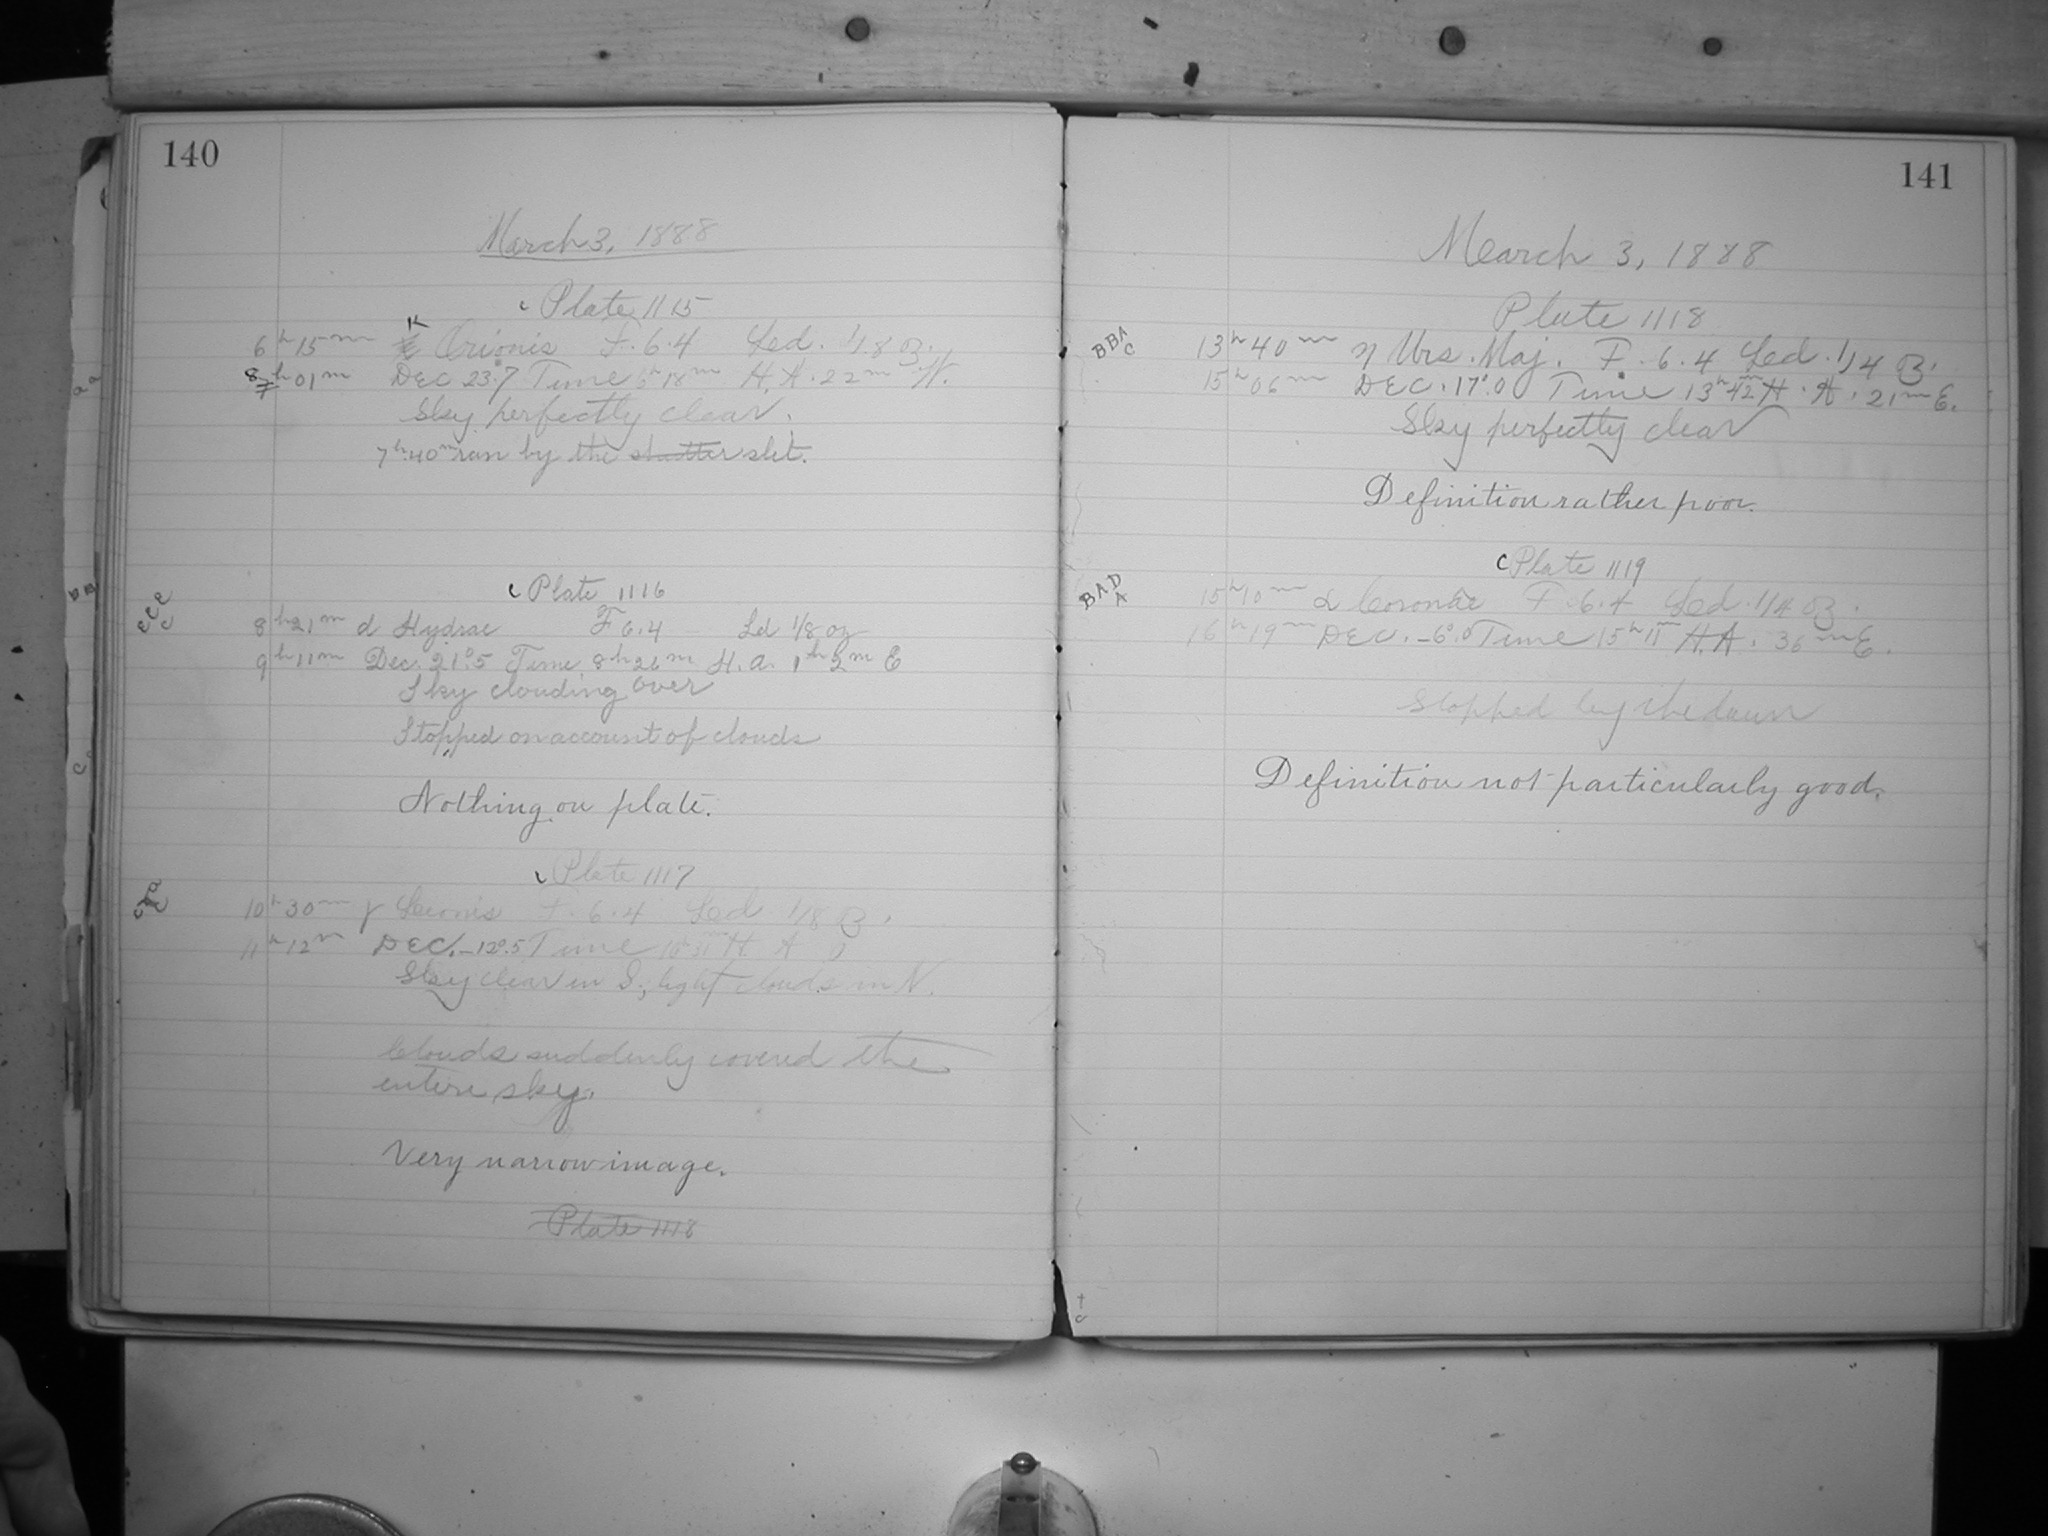 140
March 3, 1888
c Plate 1115
K
6h 15m Orionis F. 6.4 Led. 1/8 oz.
8h 01m DEC 23°.7 Time 6h 18m H.A. 22m W.
Sky perfectly clear.
7h 40m ran by the shutter slit.
c Plate 1116
CCC
C
8h 21m α Hydrae F 6.4 Ld 1/8 oz
9h 11m Dec. 21°.5 Time 8h 26m H.a. 1h 2m E
Sky clouding over
Stopped on account of clouds
Nothing on plate.
c Plate 1117
10h 30m γ Leonis F. 6.4 Led 1/8 oz.
11h 12m DEC. -12°.5 Time 10h 31m H. A 0
Sky clear in S., light clouds in N.
Clouds suddenly covered the
entire sky.
Very narrow image.
Plate 1118
141
March 3, 1888
Plate 1118
BBA
C
13h 40m η Urs. Maj. F. 6.4 Led. 1/4 oz.
15h 06m DEC. 17°.0 Time 13h 42m H. A. 21m E.
Sky perfectly clear
Definition rather poor.
c Plate 1119
BAD
A
15h 10m α Coronae F. 6.4 Led. 1/4 oz.
16h 19m DEC. -6°.0 Time 15h 11m H.A. 36m E.
Stopped by the dawn
Definition not particularly good.